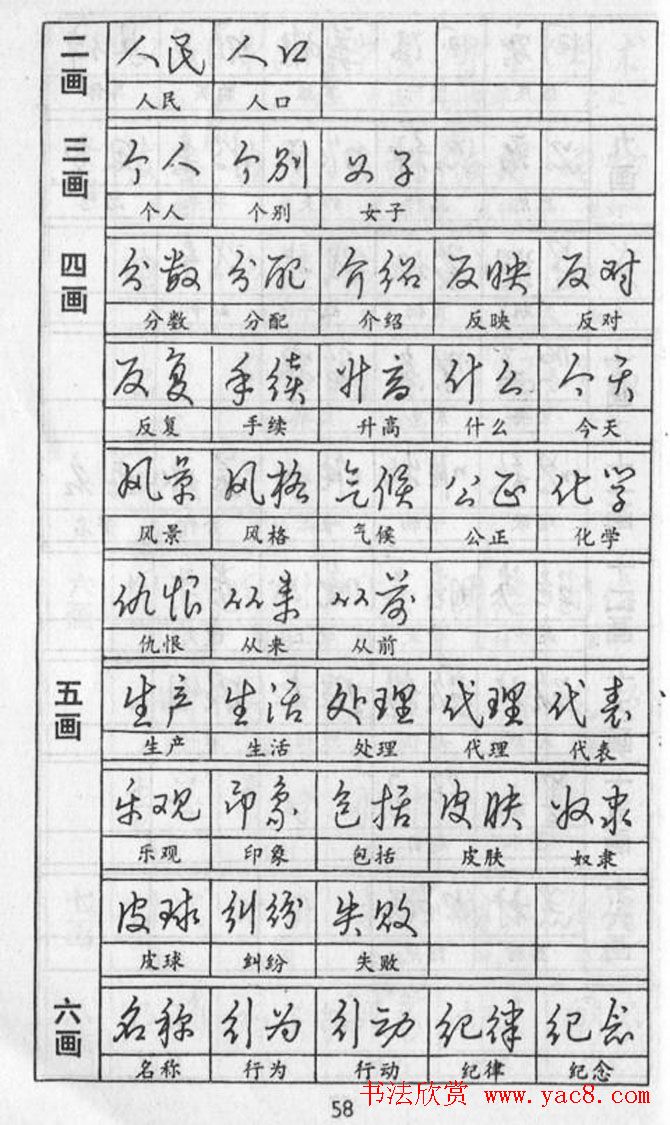 二画
人民 人口
人民 人口
三画
个人 个别 女子
个人 个别 女子
四画
分散 分配 介绍 反映 反对
分数 分配 介绍 反映 反对
反复 手续 升高 什么 今天
反复 手续 升高 什么 今天
风景 风格 气候 公正 化学
风景 风格 气候 公正 化学
仇恨 从来 从前
仇恨 从来 从前
五画
生产 生活 处理 代理 代表
生产 生活 处理 代理 代表
乐观 印象 包括 皮肤 奴隶
乐观 印象 包括 皮肤 奴隶
皮球 纠纷 失败
皮球 纠纷 失败
六画
名称 行为 行动 纪律 纪念
名称 行为 行动 纪律 纪念
书法欣赏 www.yac8.com
58